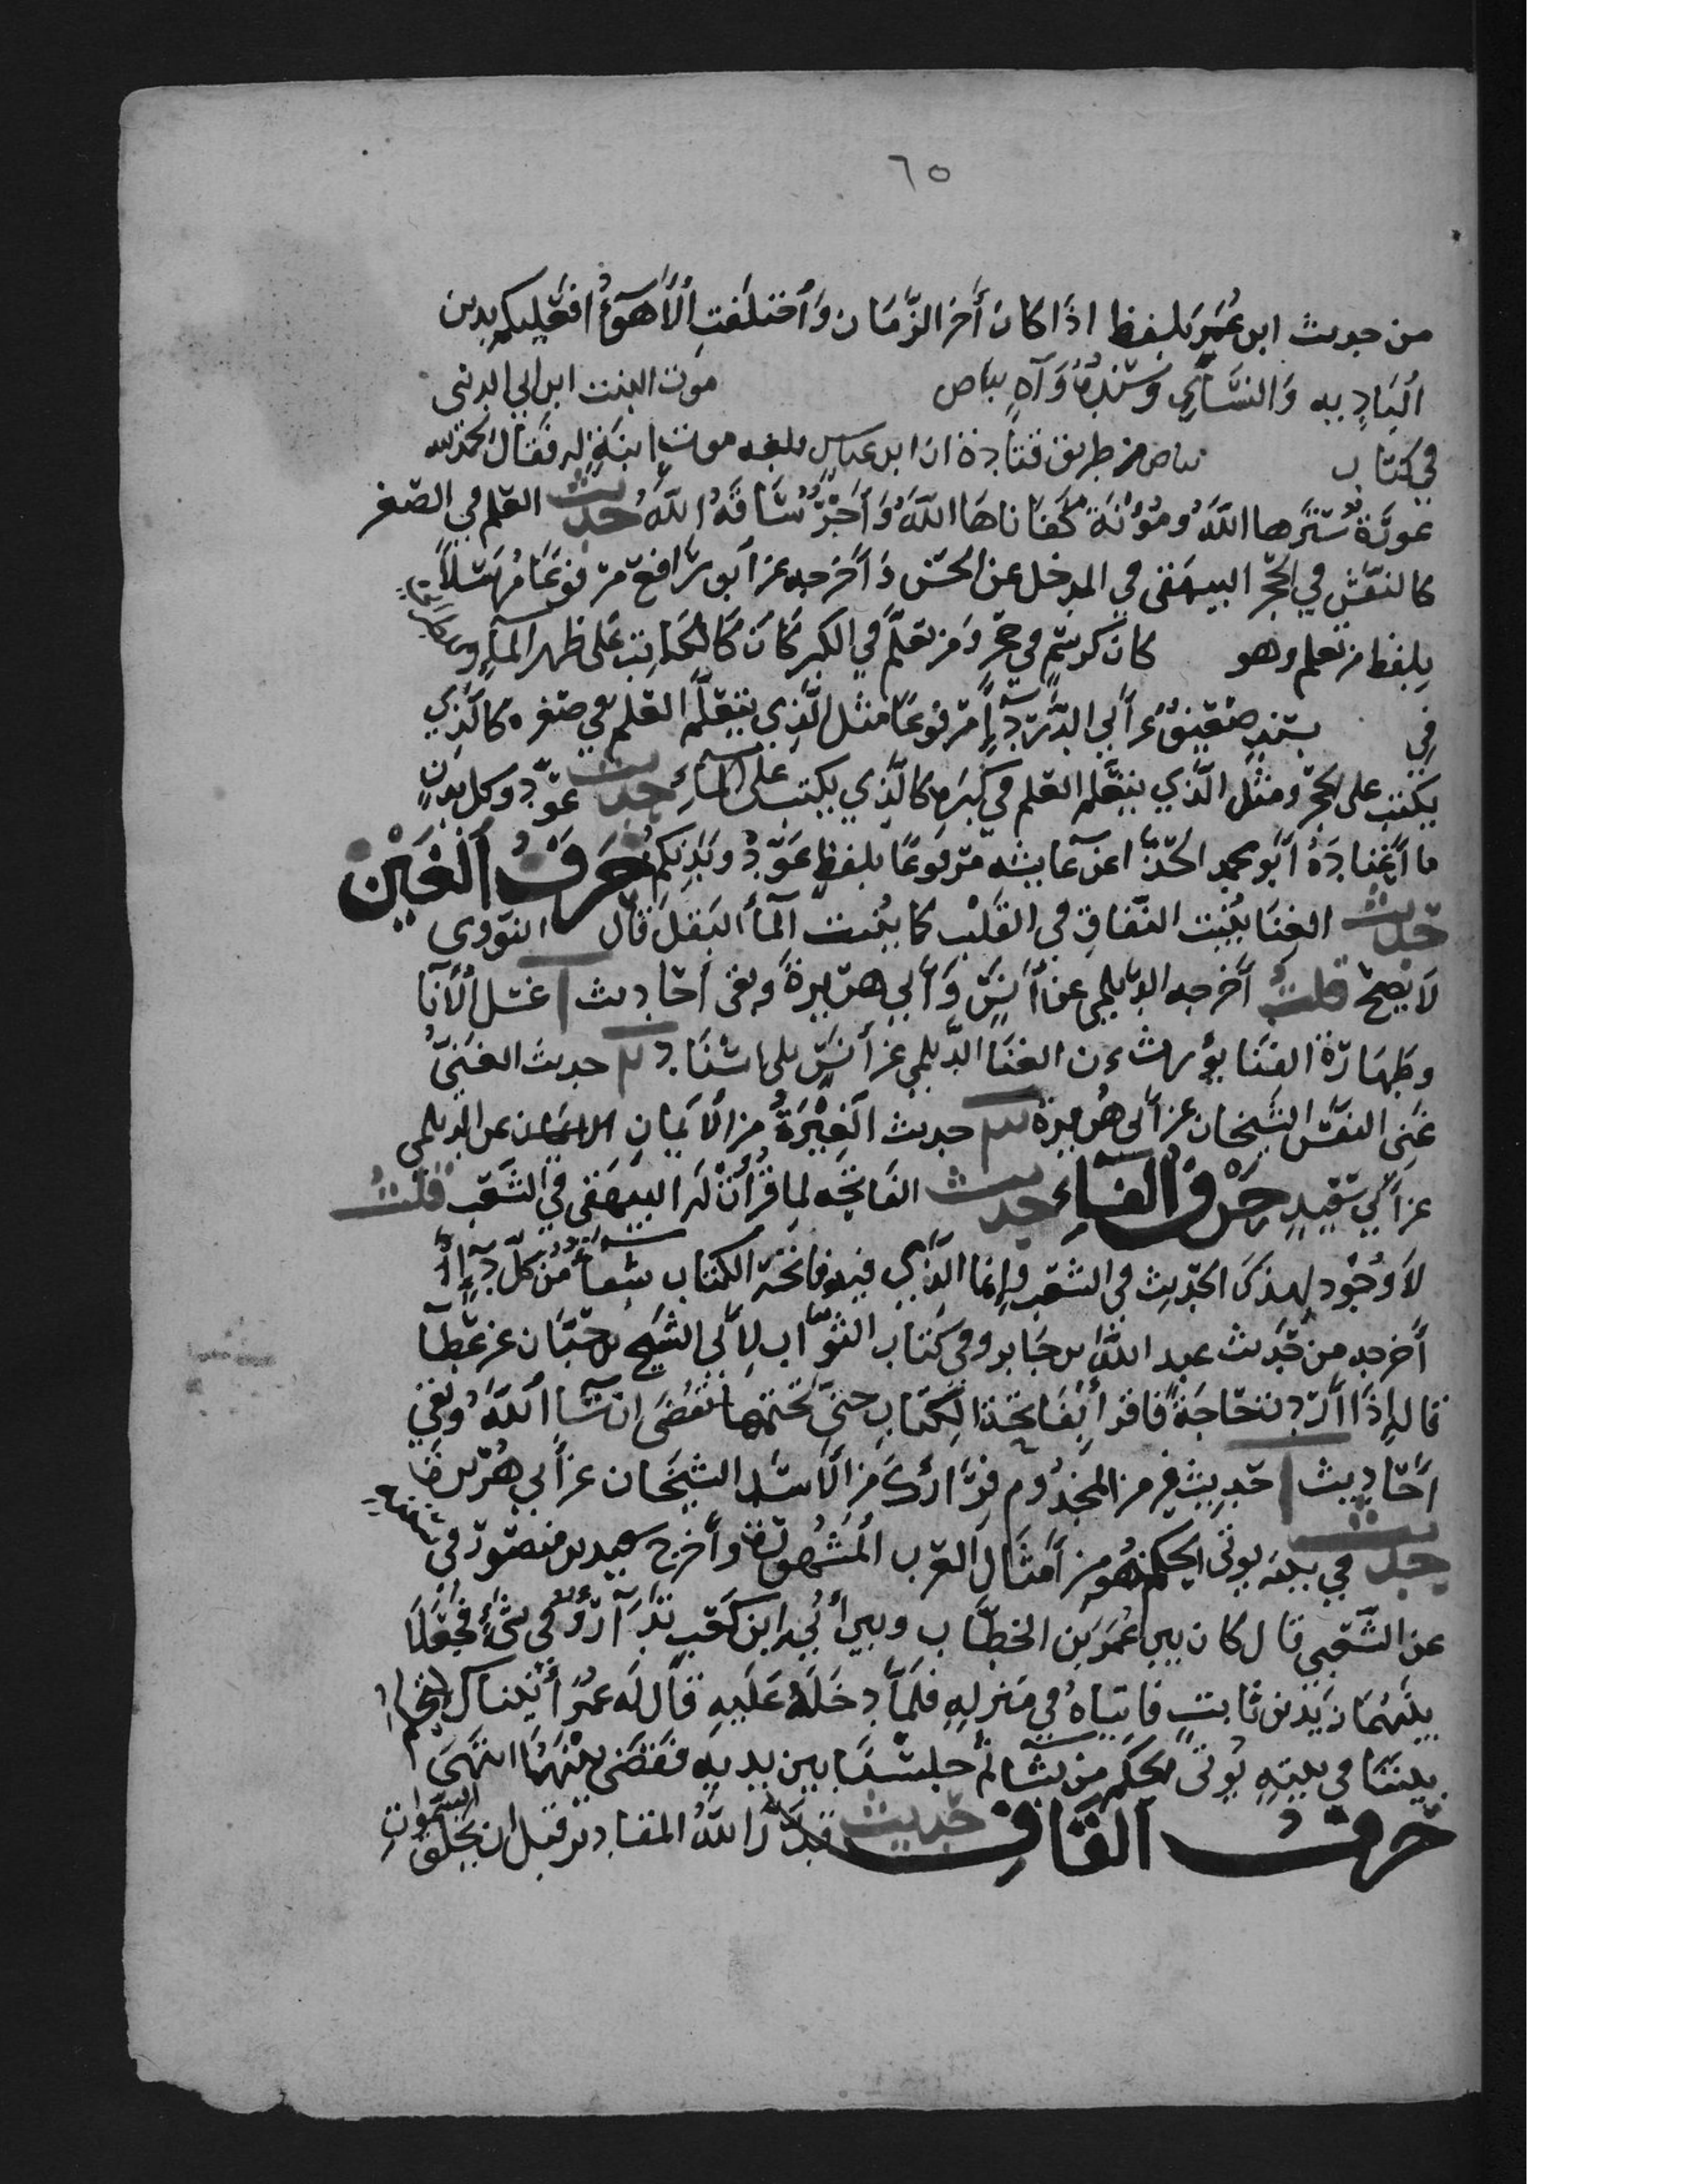 ٦٥
من حديث ابن عُمَرَ بلفظ اذَا كانَ أخر الزّمَان وَأختلَفت ألأَهوآءُ فعَليكم بدين
ألبَادِيه وَالنسَّآئي وسَنَدُهُ وَآهٍ بياض موت البنت ابن ابي الدني
في كتاب بياض من طريق قتادة ان ابن عباس بلغه موت ابنةٍ له فقال الحمد لله
عورَة سَتَرها اللّهُ ومُؤنَة كفَاناهَا اللّهُ وَأجْرٌ سَاقَهُ اللّهُ حديث العلم في الصغر
كالنقش في الحجر البيهقى في المدخل عن الحسن وَأخرجه عن أبو رافع مرفوعًا مُرسَلاً
بلفظ من تعلم وهو كان كوشمٍ في حجرٍ وَمن تعلَّم في الكبر كانَ كالكاتِب عَلى ظهر المآءِ
في بسَند ضعيفٍ عن أبي الدَّردآءِ مرفوعًا مثل الّذي يتعلّم العلم في صغره كالّذي
يكتب على الحجر ومثَل الّذي يتعَّلم العلم في كبَرِه كالّذي يكتب على المآءِ حديث عوّدوكل بدنٍ
ما أعتادَهُ أبو محمد الخلّال عن عايشه مرفوعًا بلفظ عَوّدُو بَدَنكم حَرفُ ألغَيْن
حديث الغنَا يُنبت النفاق في القلْب كما يُنبت ألمآ البَقلَ قال النووى
لَا يصحّ قلتُ أخرجه الديلمى عن أنسٍ وَأبي هرَيرةَ وبقى أحَاديث غسَل ألأنَا
وطهَارةُ الفِنَا يؤرثان الغنَا الدّيلمي عن أنسٍ بلى اسْنَاد حديث الغَنىُّ
غَنى النفس الشيخان عن أبى هُريرة حديث ألغِيْرَةُ من الأيمانِ الديلمى
عن أبي سَعيدٍ حَرْفُ ألفَاءِ حديث الفاتحَه لمِا قُرأتْ لَه البيهقى في الشعب قلتُ
لاَ وُجُود لِهذكَ الحَديث في الشعب وإنما الّذى فيه فاتحَة الكتاب شفآءٌ من كُلّ دَآءٍ
أخرجه من حَديث عبد اللّه بن جَابر وفي كتاب الثوّاب لأبى الشيخ بن حبّان عن عَطآ
قال إذَا أرَدت حَاجَةً فاقرأ بفَاتحَة الكتاب حتى تختمها تُقضَى ان شآ اللّهُ وبقي
أحَاديث حَديث فِر من المجذُوم فرَارُكَ من الأسَد الشيخان عن أبي هُرَيرةَ
حديث في بيته يوتى الحكم هُوَ من أمثَال العَرب ألمَشهُورَة وأخرج سعيد بن منصُور في سننه
عن الشَّعبي قال كان بين عُمَرَ بن الخطّاب وبين أُبي ابن كعَبٍ تدَآرُؤٌ في شيءٍ فجعَلاَ
بينَهُمَا زيد بن ثابتٍ فاتيَاهُ في منزلهِ فلَمّا دخَلَا عَليهِ قالَ لَه عمرُ أتينَاكَ لتحكم
بينَنَا في بيتهِ يُوتى الحَكم من شآ ثُم جلسَا بين يديهِ فقضَى بينَهُمَا انتهَى
حَرفُ ألقَافِ حديث قدَّرَ اللّهُ المقادير قبل ان يخلق السموات